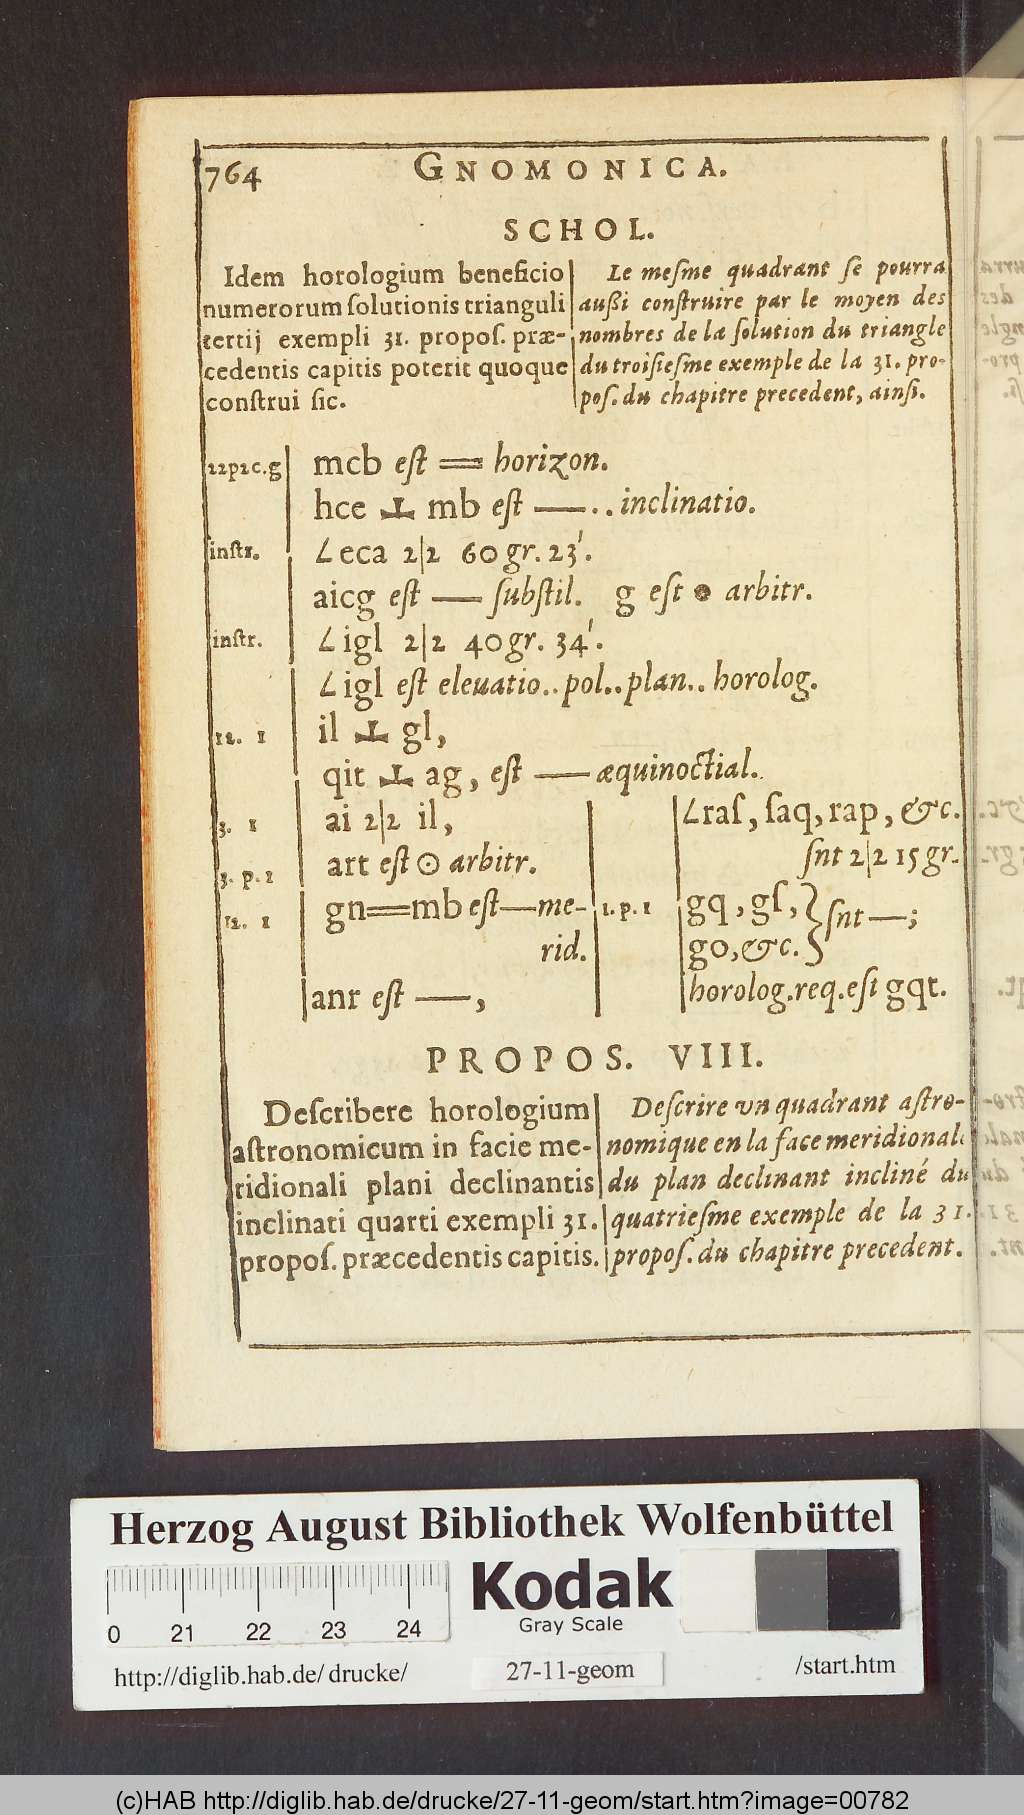 764 GNOMONICA.
SCHOL.
Idem horologium beneficio
numerorum ſolutionis trianguli
tertij exempli 31. propoſ. præ-
cedentis capitis poterit quoque
conſtrui ſic.
Le meſme quadrant ſe pourra
außi conſtruire par le moyen des
nombres de la ſolution du triangle
du troiſieſme exemple de la 31. pro-
poſ. du chapitre precedent, ainſi.
22p2c.g | mcb eſt == horizon.
hce ⊥ mb eſt —.. inclinatio.
inſtr. | ∠ eca 2|2 60 gr. 23'.
aicg eſt — ſubſtil. g eſt • arbitr.
inſtr. | ∠ igl 2|2 40 gr. 34'.
∠ igl eſt eleuatio.. pol.. plan.. horolog.
12. 1 | il ⊥ gl,
qit ⊥ ag, eſt — æquinoctial.
3. 1 | ai 2|2 il,
3. p. 1 | art eſt ⊙ arbitr.
12. 1 | gn == mb eſt — me-
rid.
anr eſt —,
∠ raſ, ſaq, rap, &c.
ſnt 2|2 15 gr.
1. p. 1 | gq, gſ, } ſnt —;
go, &c. }
horolog. req. eſt gqt.
PROPOS. VIII.
Deſcribere horologium
aſtronomicum in facie me-
ridionali plani declinantis
inclinati quarti exempli 31.
propoſ. præcedentis capitis.
Deſcrire vn quadrant aſtro-
nomique en la face meridionale
du plan declinant incliné du
quatrieſme exemple de la 31.
propoſ. du chapitre precedent.
Herzog August Bibliothek Wolfenbüttel
0 21 22 23 24
Kodak
Gray Scale
http://diglib.hab.de/ drucke/ 27-11-geom /start.htm
(c)HAB http://diglib.hab.de/drucke/27-11-geom/start.htm?image=00782